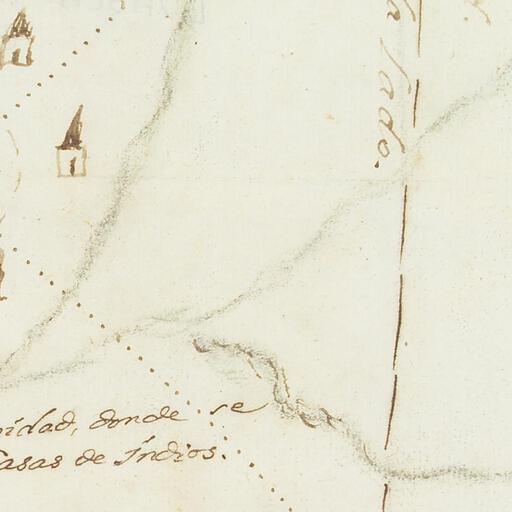 lado.
nidad, donde se
Casas de Indios.